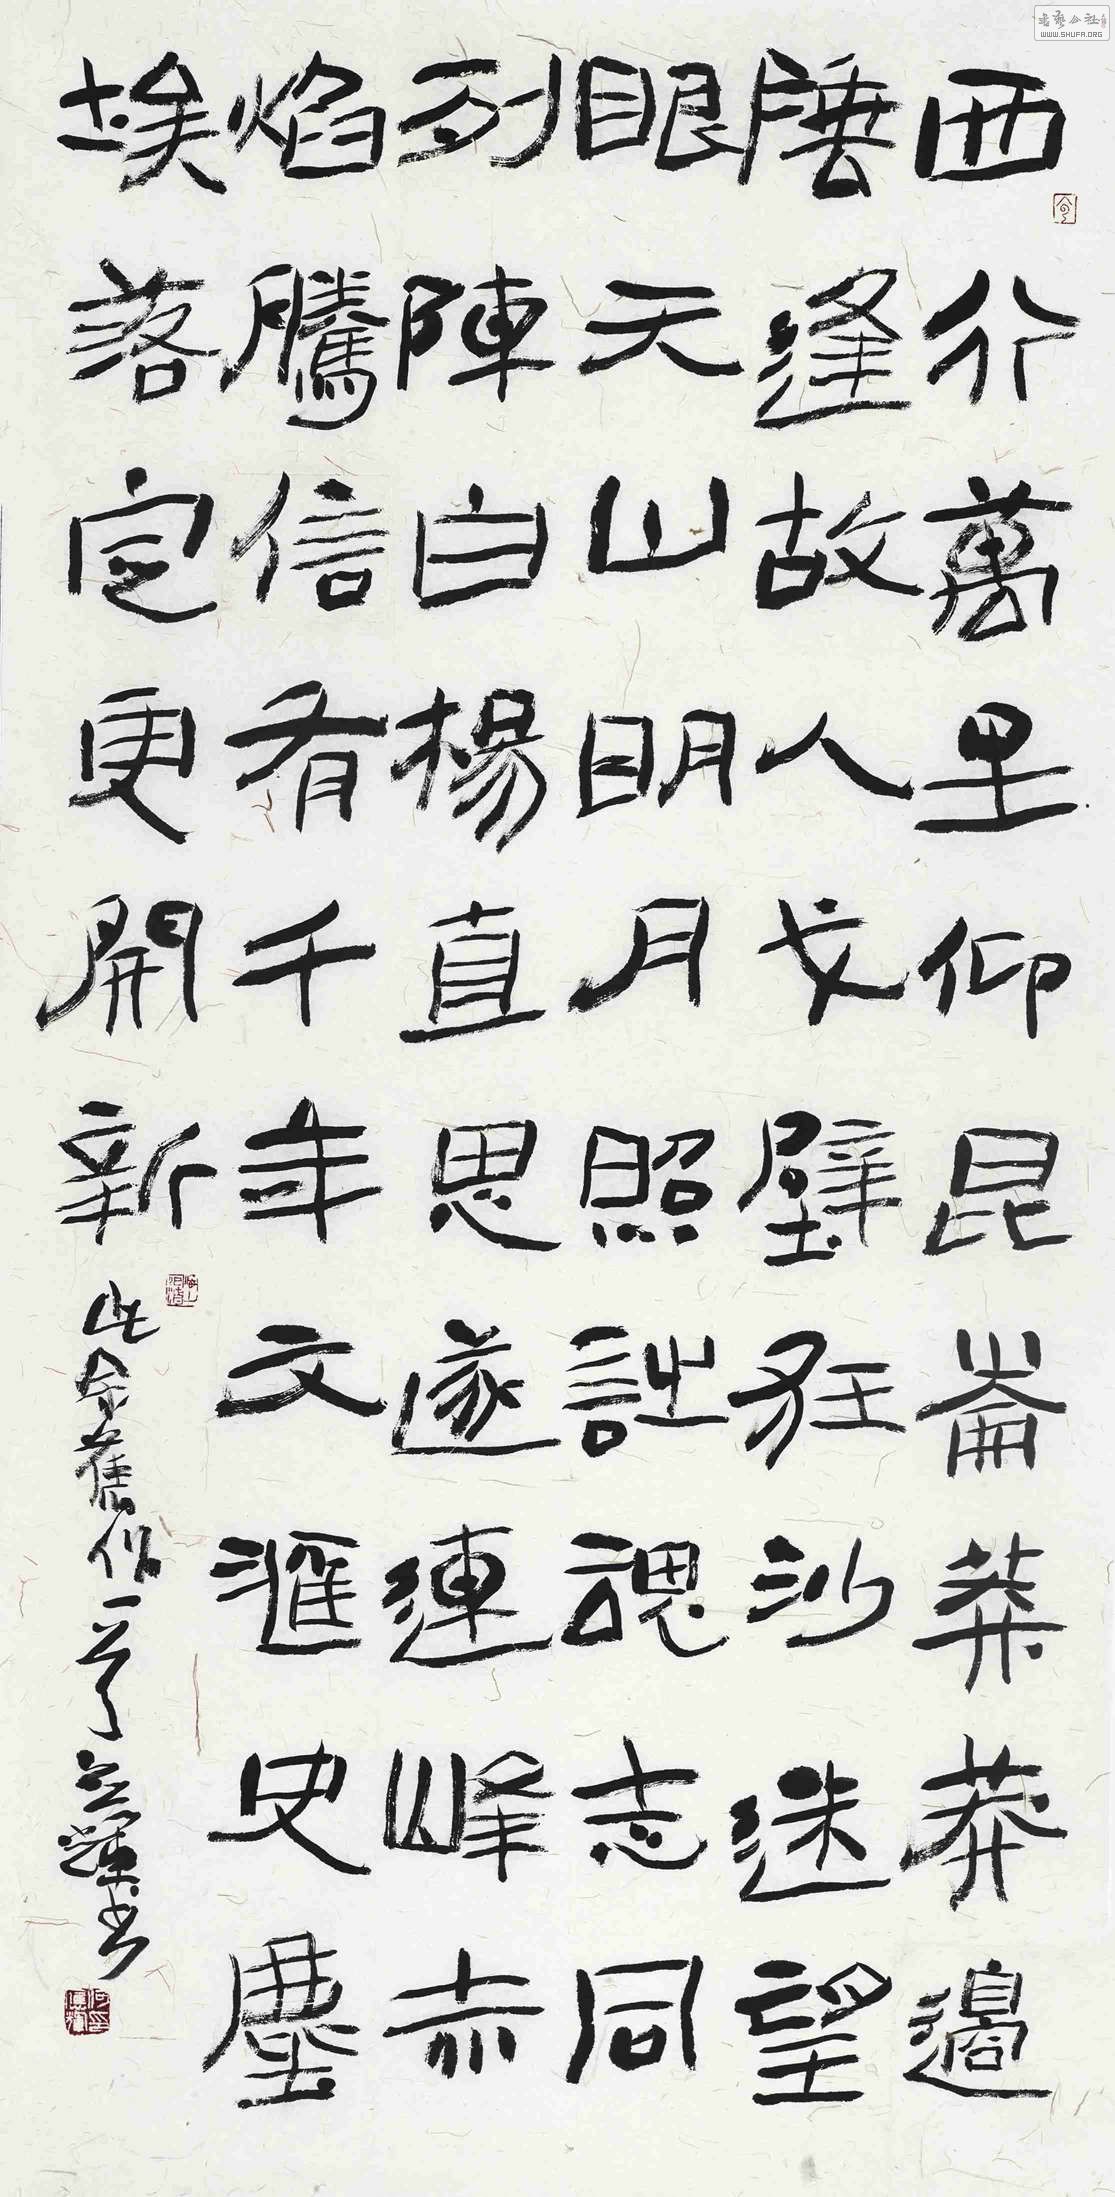 西行萬里仰昆崙莽莽邊
陲逢故人戈壁狂沙迷望
眼天山明月照詩魂志同
列陣白楊直思遂連峰赤
焰騰信有千年文滙史塵
埃落定更開新
此余舊作一 應輝书
书艺公社
WWW.SHUFA.ORG